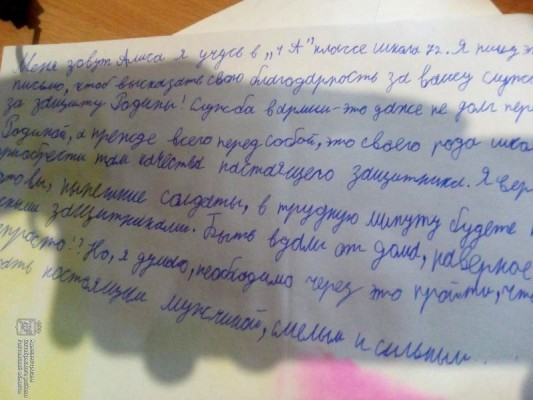 Меня зовут Алиса я учусь в „ 4 А" классе школа 72. Я пишу
письмо, чтоб высказать свою благодарность за вашу служ
за защиту Родины! Служба в армии - это даже не долг пер
Родиной, а прежде всего перед собой, это своего рода шко
приобрести там качества настоящего защитника. Я вер
вы, нынешние солдаты, в трудную минуту будете
защитниками. Быть вдали от дома, наверное
просто!? Но, я думаю, необходимо через это пройти, что
настоящим мужчиной, смелым и сильным.